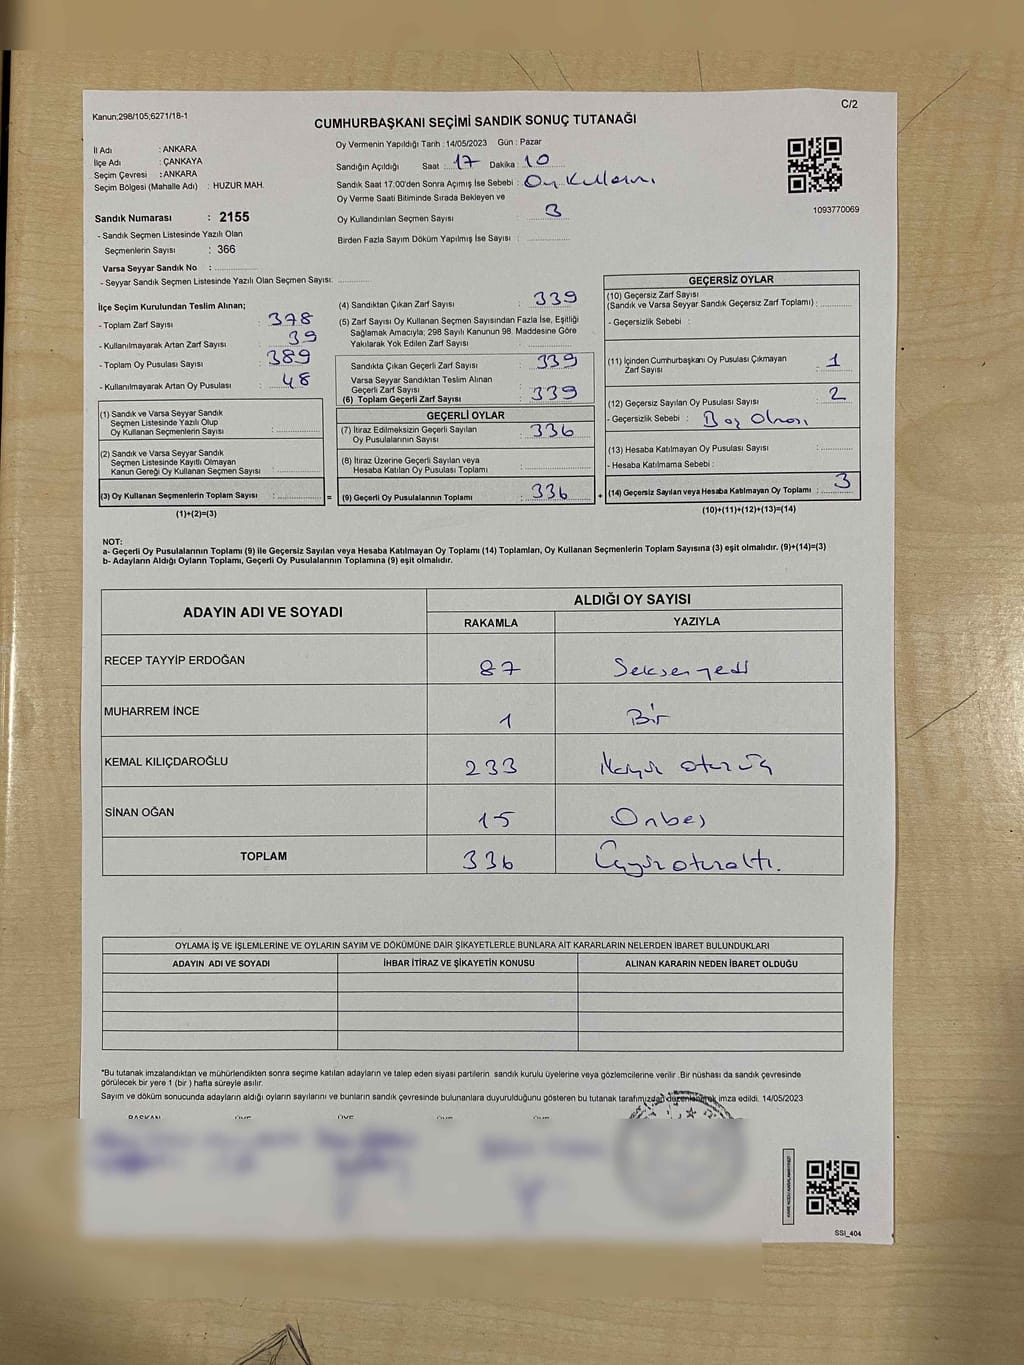 Kanun;298/105;6271/18-1
C/2
CUMHURBAŞKANI SEÇİMİ SANDIK SONUÇ TUTANAĞI
İl Adı : ANKARA
İlçe Adı : ÇANKAYA
Seçim Çevresi : ANKARA
Seçim Bölgesi (Mahalle Adı) : HUZUR MAH.
Sandık Numarası : 2155
- Sandık Seçmen Listesinde Yazılı Olan
Seçmenlerin Sayısı : 366
Varsa Seyyar Sandık No :
- Seyyar Sandık Seçmen Listesinde Yazılı Olan Seçmen Sayısı:
Oy Vermenin Yapıldığı Tarih :14/05/2023 Gün : Pazar
Sandığın Açıldığı Saat : 17 Dakika : 10
Sandık Saat 17.00'den Sonra Açımış İse Sebebi : Oy Kullanı
Oy Verme Saati Bitiminde Sırada Bekleyen ve
Oy Kullandırılan Seçmen Sayısı : 3
Birden Fazla Sayım Döküm Yapılmış İse Sayısı :
1093770069
İlçe Seçim Kurulundan Teslim Alınan;
- Toplam Zarf Sayısı : 378
- Kullanılmayarak Artan Zarf Sayısı : 39
- Toplam Oy Pusulası Sayısı : 389
- Kullanılmayarak Artan Oy Pusulası : 48
(1) Sandık ve Varsa Seyyar Sandık
Seçmen Listesinde Yazılı Olup
Oy Kullanan Seçmenlerin Sayısı :
(2) Sandık ve Varsa Seyyar Sandık
Seçmen Listesinde Kayıtlı Olmayan
Kanun Gereği Oy Kullanan Seçmen Sayısı :
(3) Oy Kullanan Seçmenlerin Toplam Sayısı : =
(1)+(2)=(3)
(4) Sandıktan Çıkan Zarf Sayısı : 339
(5) Zarf Sayısı Oy Kullanan Seçmen Sayısından Fazla İse, Eşitliği
Sağlamak Amacıyla; 298 Sayılı Kanunun 98. Maddesine Göre
Yakılarak Yok Edilen Zarf Sayısı :
Sandıkta Çıkan Geçerli Zarf Sayısı : 339
Varsa Seyyar Sandıktan Teslim Alınan
Geçerli Zarf Sayısı :
(6) Toplam Geçerli Zarf Sayısı : 339
GEÇERLİ OYLAR
(7) İtiraz Edilmeksizin Geçerli Sayılan
Oy Pusulalarının Sayısı : 336
(8) İtiraz Üzerine Geçerli Sayılan veya
Hesaba Katılan Oy Pusulası Toplamı :
(9) Geçerli Oy Pusulalarının Toplamı : 336 +
GEÇERSİZ OYLAR
(10) Geçersiz Zarf Sayısı
(Sandık ve Varsa Seyyar Sandık Geçersiz Zarf Toplamı) :
- Geçersizlik Sebebi :
(11) İçinden Cumhurbaşkanı Oy Pusulası Çıkmayan
Zarf Sayısı : 1
(12) Geçersiz Sayılan Oy Pusulası Sayısı : 2
- Geçersizlik Sebebi : Boş Olması
(13) Hesaba Katılmayan Oy Pusulası Sayısı :
- Hesaba Katılmama Sebebi :
(14) Geçersiz Sayılan veya Hesaba Katılmayan Oy Toplamı : 3
(10)+(11)+(12)+(13)=(14)
NOT:
a- Geçerli Oy Pusulalarının Toplamı (9) ile Geçersiz Sayılan veya Hesaba Katılmayan Oy Toplamı (14) Toplamları, Oy Kullanan Seçmenlerin Toplam Sayısına (3) eşit olmalıdır. (9)+(14)=(3)
b- Adayların Aldığı Oyların Toplamı, Geçerli Oy Pusulalarının Toplamına (9) eşit olmalıdır.
ADAYIN ADI VE SOYADI
ALDIĞI OY SAYISI
RAKAMLA YAZIYLA
RECEP TAYYİP ERDOĞAN 87 Seksenyedi
MUHARREM İNCE 1 Bir
KEMAL KILIÇDAROĞLU 233 İkiyüz otuz üç
SİNAN OĞAN 15 Onbeş
TOPLAM 336 Üçyüzotuzaltı.
OYLAMA İŞ VE İŞLEMLERİNE VE OYLARIN SAYIM VE DÖKÜMÜNE DAİR ŞİKAYETLERLE BUNLARA AİT KARARLARIN NELERDEN İBARET BULUNDUKLARI
ADAYIN ADI VE SOYADI İHBAR İTİRAZ VE ŞİKAYETİN KONUSU ALINAN KARARIN NEDEN İBARET OLDUĞU
*Bu tutanak imzalandıktan ve mühürlendikten sonra seçime katılan adayların ve talep eden siyasi partilerin sandık kurulu üyelerine veya gözlemcilerine verilir .Bir nüshası da sandık çevresinde
görülecek bir yere 1 (bir ) hafta süreyle asılır.
Sayım ve döküm sonucunda adayların aldığı oyların sayılarını ve bunların sandık çevresinde bulunanlara duyurulduğunu gösteren bu tutanak tarafımızdan düzenlenerek imza edildi. 14/05/2023
BAŞKAN ÜYE ÜYE ÜYE
SSI_404